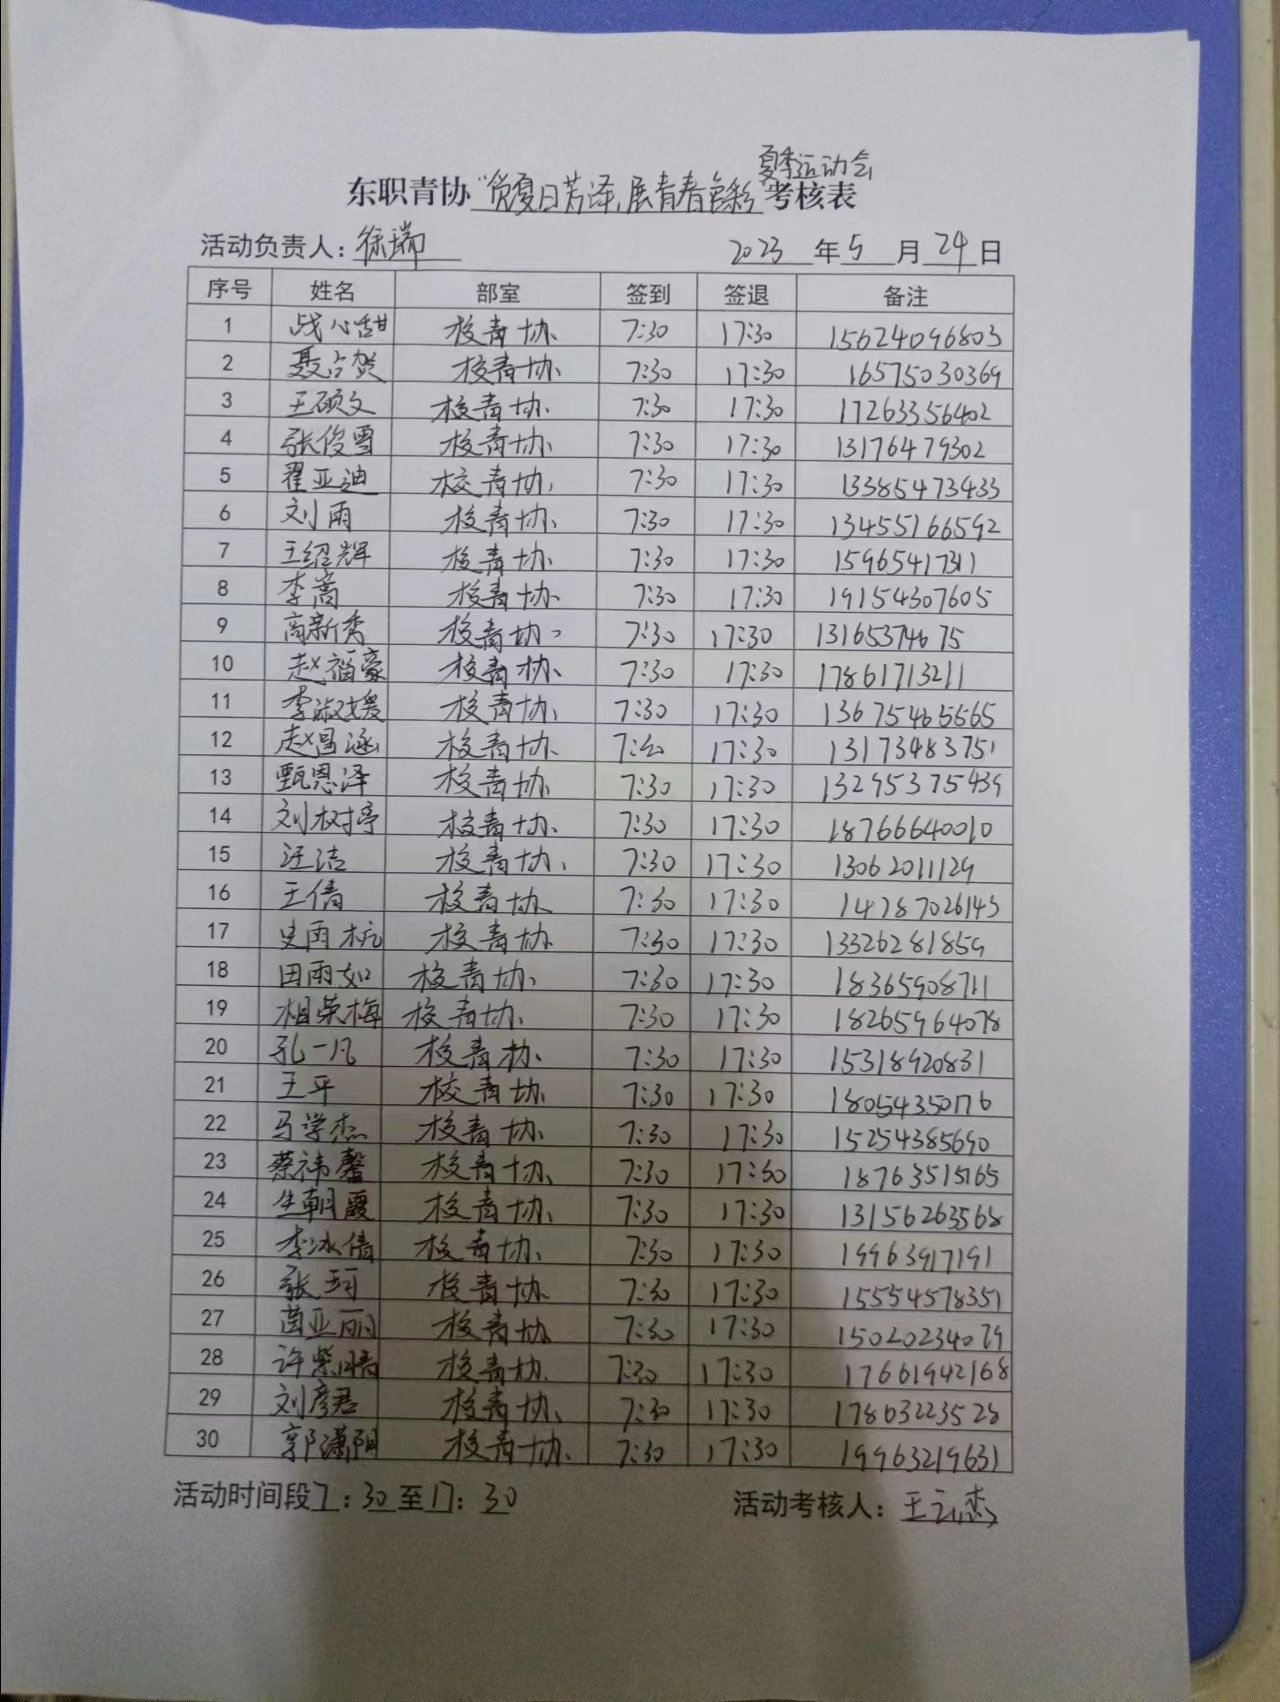 夏季运动会
东职青协“赏夏日芳泽,展青春色彩”考核表
活动负责人:徐瑞 2023 年 5 月 24 日
序号 姓名 部室 签到 签退 备注
1 战心甜 校青协 7:30 17:30 15624096803
2 聂占贺 校青协 7:30 17:30 16575030369
3 王硕文 校青协 7:30 17:30 17263356402
4 张俊雪 校青协 7:30 17:30 13176479302
5 翟亚迪 校青协 7:30 17:30 13385473433
6 刘雨 校青协 7:30 17:30 13455166592
7 王绍辉 校青协 7:30 17:30 15965417311
8 李嵩 校青协 7:30 17:30 19154307605
9 高新秀 校青协 7:30 17:30 13165374675
10 赵福豪 校青协 7:30 17:30 17861713211
11 李淑媛 校青协 7:30 17:30 13675465565
12 赵昌涵 校青协 7:30 17:30 13173483751
13 甄恩泽 校青协 7:30 17:30 13295375439
14 刘树亭 校青协 7:30 17:30 18766640010
15 汪洁 校青协 7:30 17:30 13062011129
16 王倩 校青协 7:30 17:30 14787026143
17 史雨杭 校青协 7:30 17:30 13326281859
18 田雨如 校青协 7:30 17:30 18365908711
19 相荣梅 校青协 7:30 17:30 18265964078
20 孔一凡 校青协 7:30 17:30 15318920831
21 王平 校青协 7:30 17:30 18054350176
22 马学杰 校青协 7:30 17:30 15254385690
23 蔡祎馨 校青协 7:30 17:30 18763515165
24 生朝霞 校青协 7:30 17:30 13156263568
25 李冰倩 校青协 7:30 17:30 19963917191
26 张珂 校青协 7:30 17:30 15554578351
27 茵亚丽 校青协 7:30 17:30 15020234079
28 许紫晴 校青协 7:30 17:30 17661942168
29 刘彦君 校青协 7:30 17:30 17863223528
30 郭潇阳 校青协 7:30 17:30 19963219631
活动时间段 7:30 至 17:30 活动考核人:王云杰